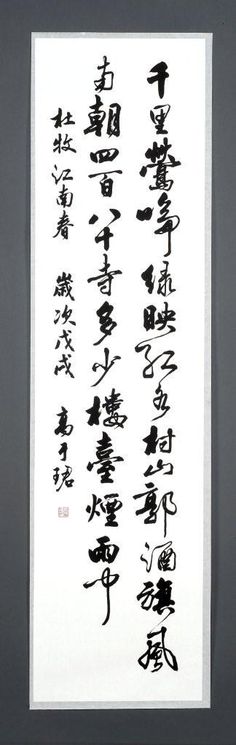 千里鶯啼綠映紅水村山郭酒旗風
南朝四百八十寺多少樓臺煙雨中
杜牧江南春 歲次戊戌 高于珺